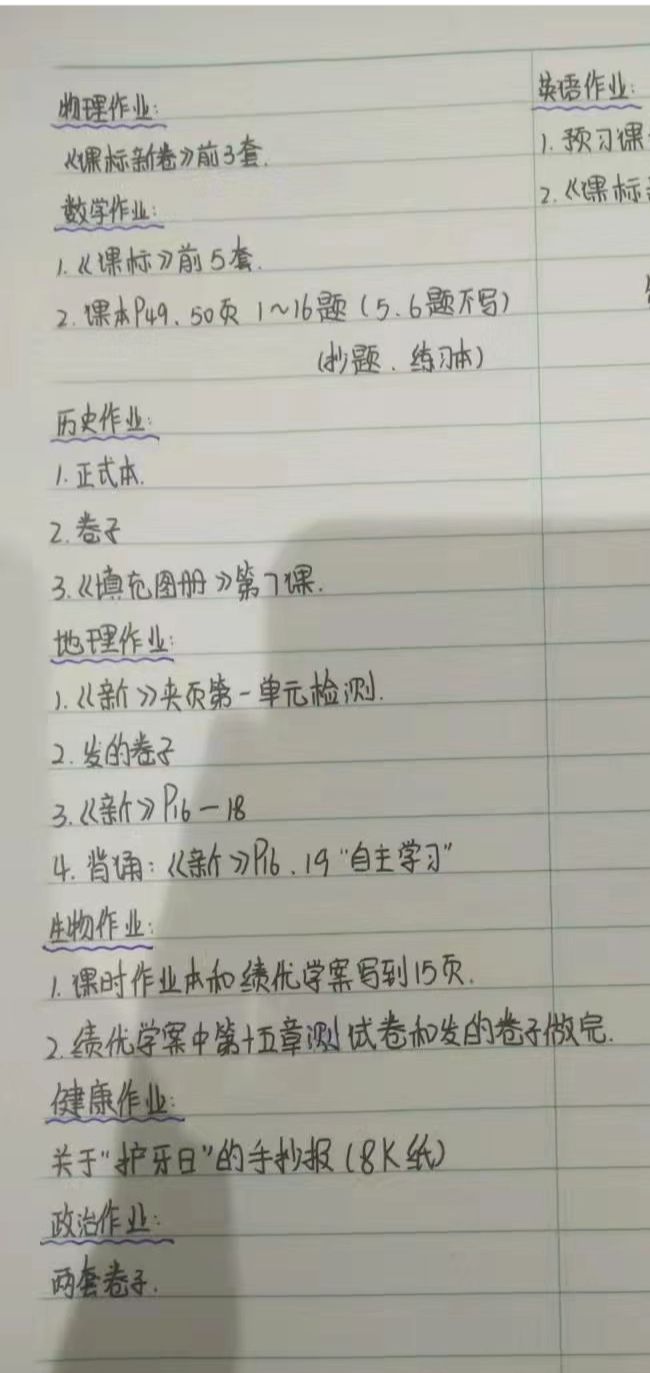 物理作业:
《课标新卷》前3套.
数学作业:
1.《课标》前5套.
2.课本P49、50页 1~16题(5.6题不写)
(抄题、练习本)
历史作业:
1.正式本.
2.卷子
3.《填充图册》第7课.
地理作业:
1.《新》夹页第一单元检测.
2.发的卷子
3.《新》P16-18
4.背诵:《新》P16、19“自主学习”
生物作业:
1.课时作业本和绩优学案写到15页.
2.绩优学案中第十五章测试卷和发的卷子做完.
健康作业:
关于“护牙日”的手抄报(8K纸)
政治作业:
两套卷子.
英语作业:
1.预习课
2.《课标